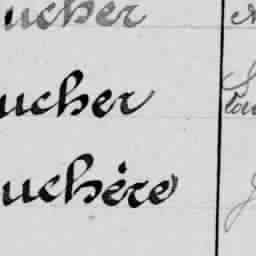 ucher
ucher
uchère